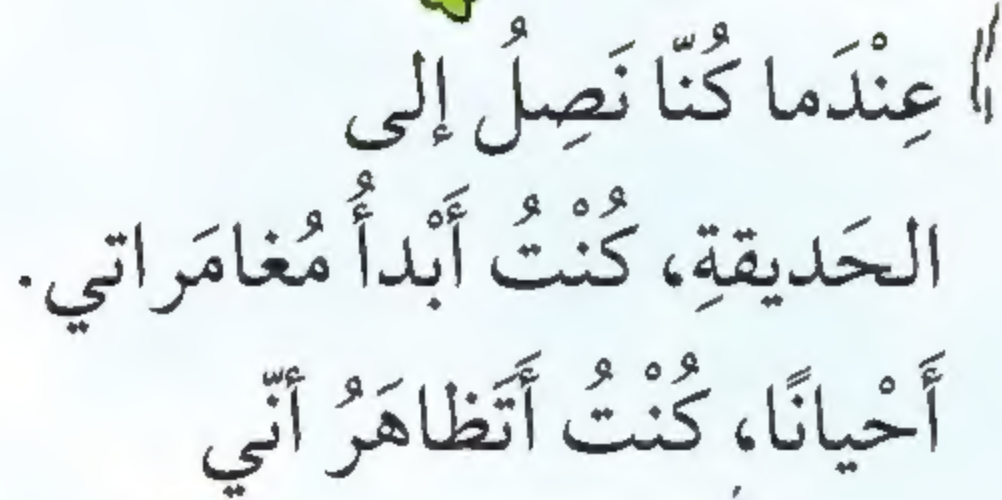 » عِنْدَما كُنّا نَصِلُ إلى
الحَديقةِ، كُنْتُ أَبْدأُ مُغامَراتي.
أَحْيانًا، كُنْتُ أَتَظاهَرُ أنّي